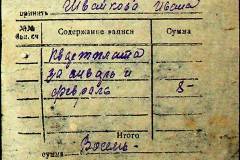 принять Швайкова Ивана
№№ Содержание записи Сумма
был. сч
Квартплата
за январь и
февраль 8-
Итого
сумма Восемь